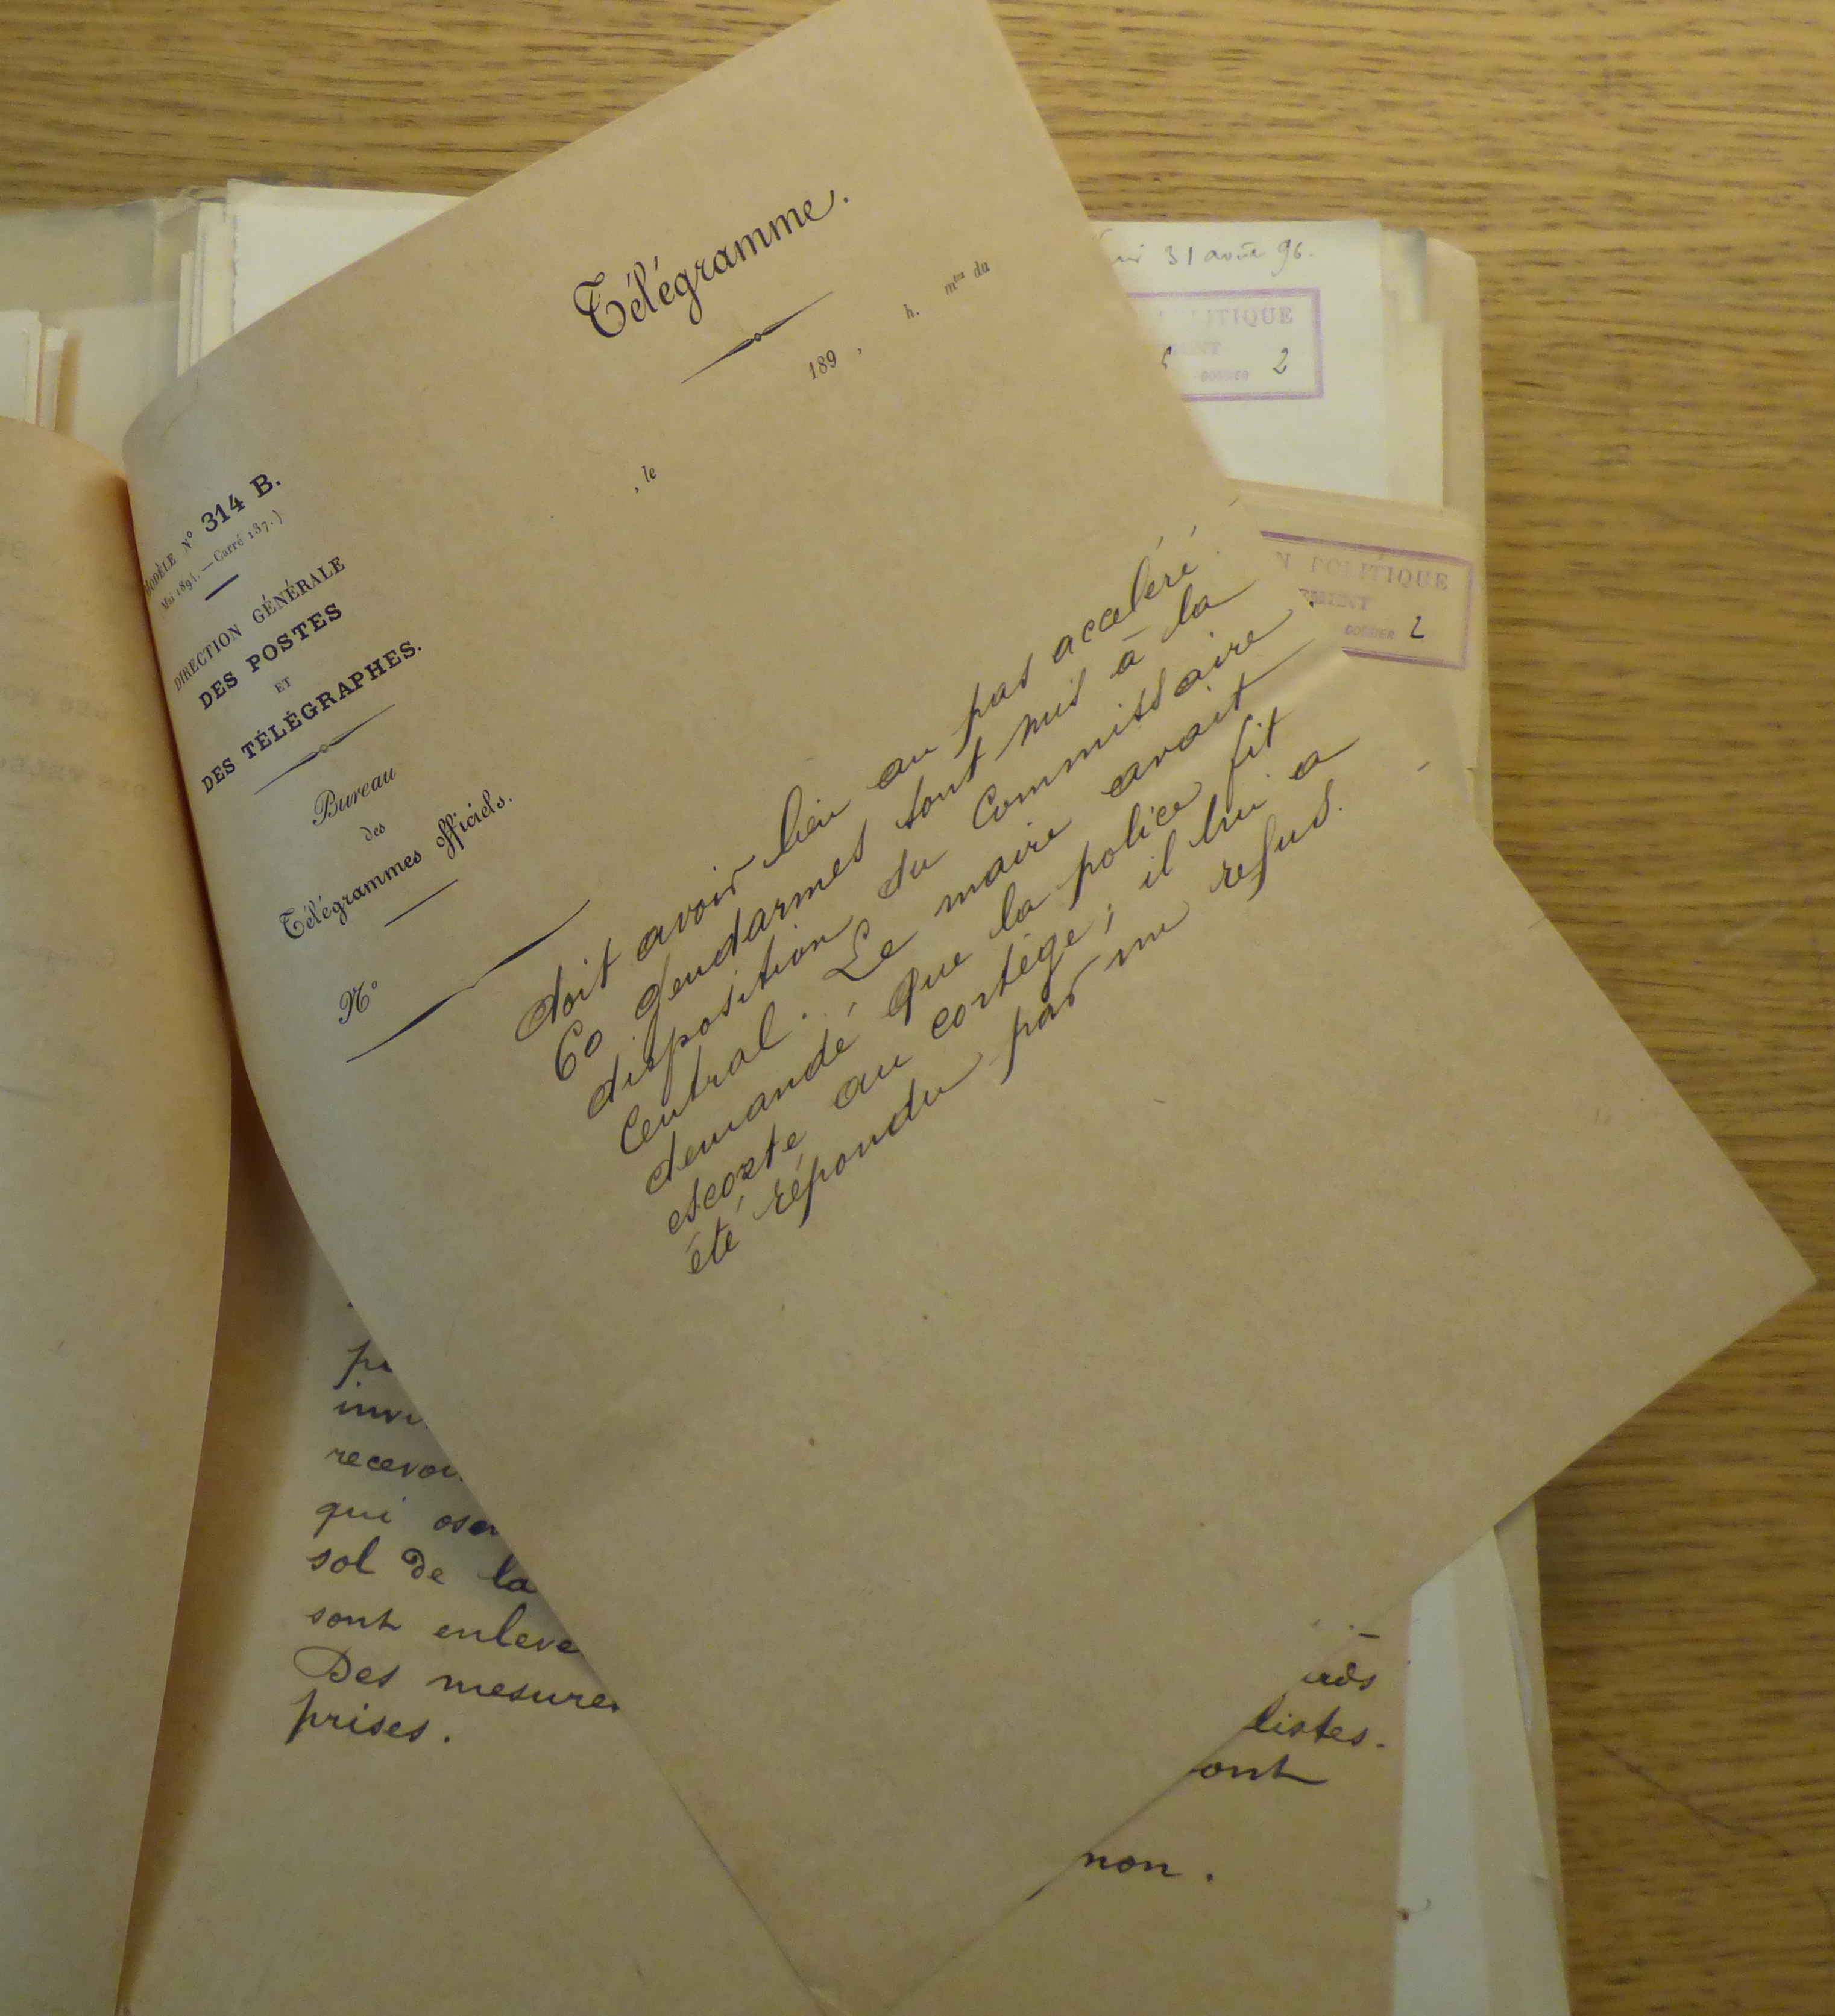 Télégramme.
, le 189 , h. mes du
MODÈLE N° 314 B.
Mai 1891. — Carré 137.)
DIRECTION GÉNÉRALE
DES POSTES
ET
DES TÉLÉGRAPHES.
Bureau
des
Télégrammes officiels.
N°
doit avoir lieu au pas accéléré.
60 gendarmes sont mis à la
disposition du Commissaire
Central. Le maire avait
demandé que la police fit
escorte au cortège; il lui a
été répondu par un refus.
31 août 96.
POLITIQUE
DOSSIER 2
N POLITIQUE
EMENT
DOSSIER 2
recevoi
qui oser
sol de la
sont enleve
Des mesures
prises.
listes.
ont
non.